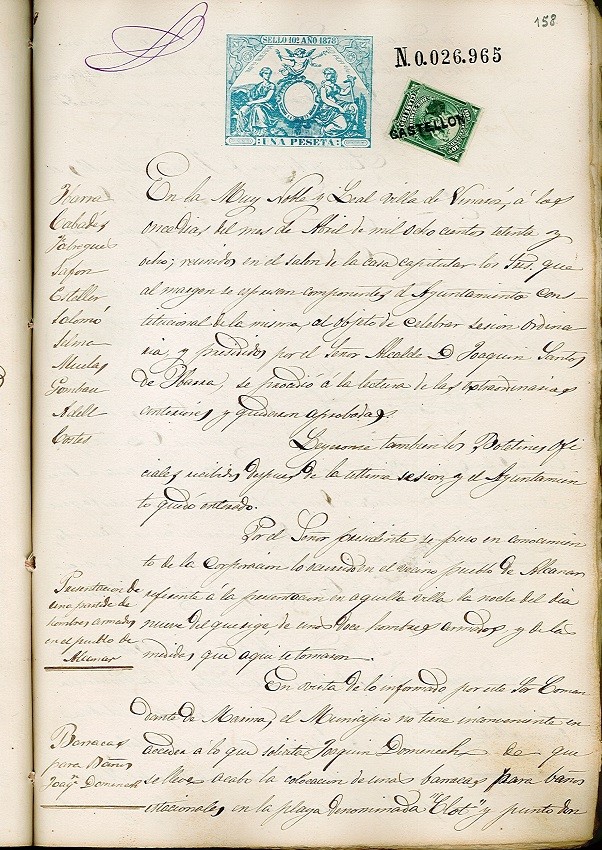 158
SELLO 10º AÑO 1878
N.0.026.965
UNA PESETA
CASTELLON
En la Muy Noble y Leal villa de Vinaroz, á los
once dias del mes de Abril de mil ocho cientos setenta y
ocho; reunidos en el salon de la casa capitular los Sres. que
al margen se espresan componentes el Ayuntamiento cons-
titucional de la misma, al objeto de celebrar sesion ordina-
ria, y presididos por el Señor Alcalde D. Joaquin Santos
de Ibarra, se procedió á la lectura de las extraordinarias
anteriores y quedaron aprobadas.
Leyeronse tambien los Boletines ofi
ciales recibidos despues de la ultima sesion y el Ayuntamien
to quedó enterado.
Por el Señor presidente se puso en conocimien
to de la Corporacion lo ocurrido en el vecino pueblo de Alcanar
referente á la presentacion en aquella villa la noche del dia
nueve del que rige, de unos doce hombres armados y de las
medidas que aqui se tomaron.
En vista de lo informado por este Sor Coman
dante de Marina, el Municipio no tiene inconveniente en
acceder á lo que solicita Joaquin Domenech de que
se lleve a cabo la colocacion de unas barracas para baños
estacionales en la playa denominada "Clot" y punto don
Ibarra
Cabadés
Fabregues
Safon
Esteller
Salomó
Miralles
Gombau
Adell
Cortes
Presentacion de
una partida de
hombres armados
en el pueblo de
Alcanar
Barracas
para Baños
Joaqn Domenech